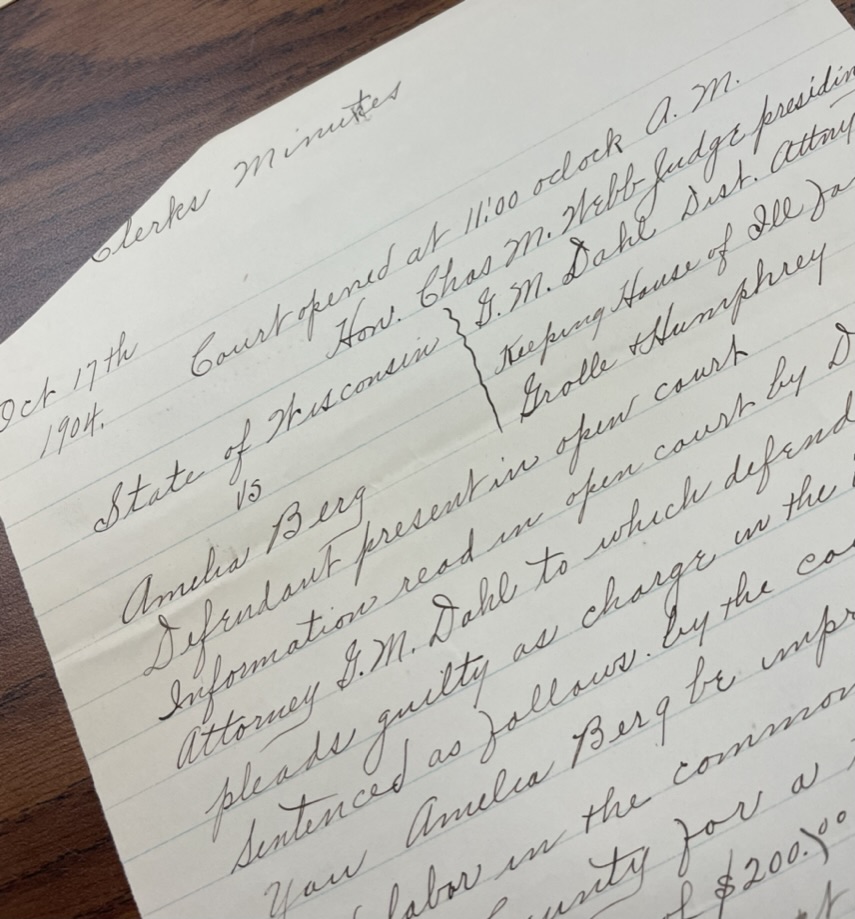 Clerks Minutes
Court opened at 11:00 oclock A. M.
Oct 17th Hon. Chas M. Webb Judge presidin
1904. G. M. Dahl Dist. Attny
State of Wisconsin Keeping House of Ill Fa
vs Grolle & Humphrey
Amelia Berg
Defendant present in open court
Information read in open court by D
Attorney G. M. Dahl to which defend
pleads guilty as charge in the
Sentenced as follows. by the co
You Amelia Berg be impr
labor in the common
unty for a
of $200.00